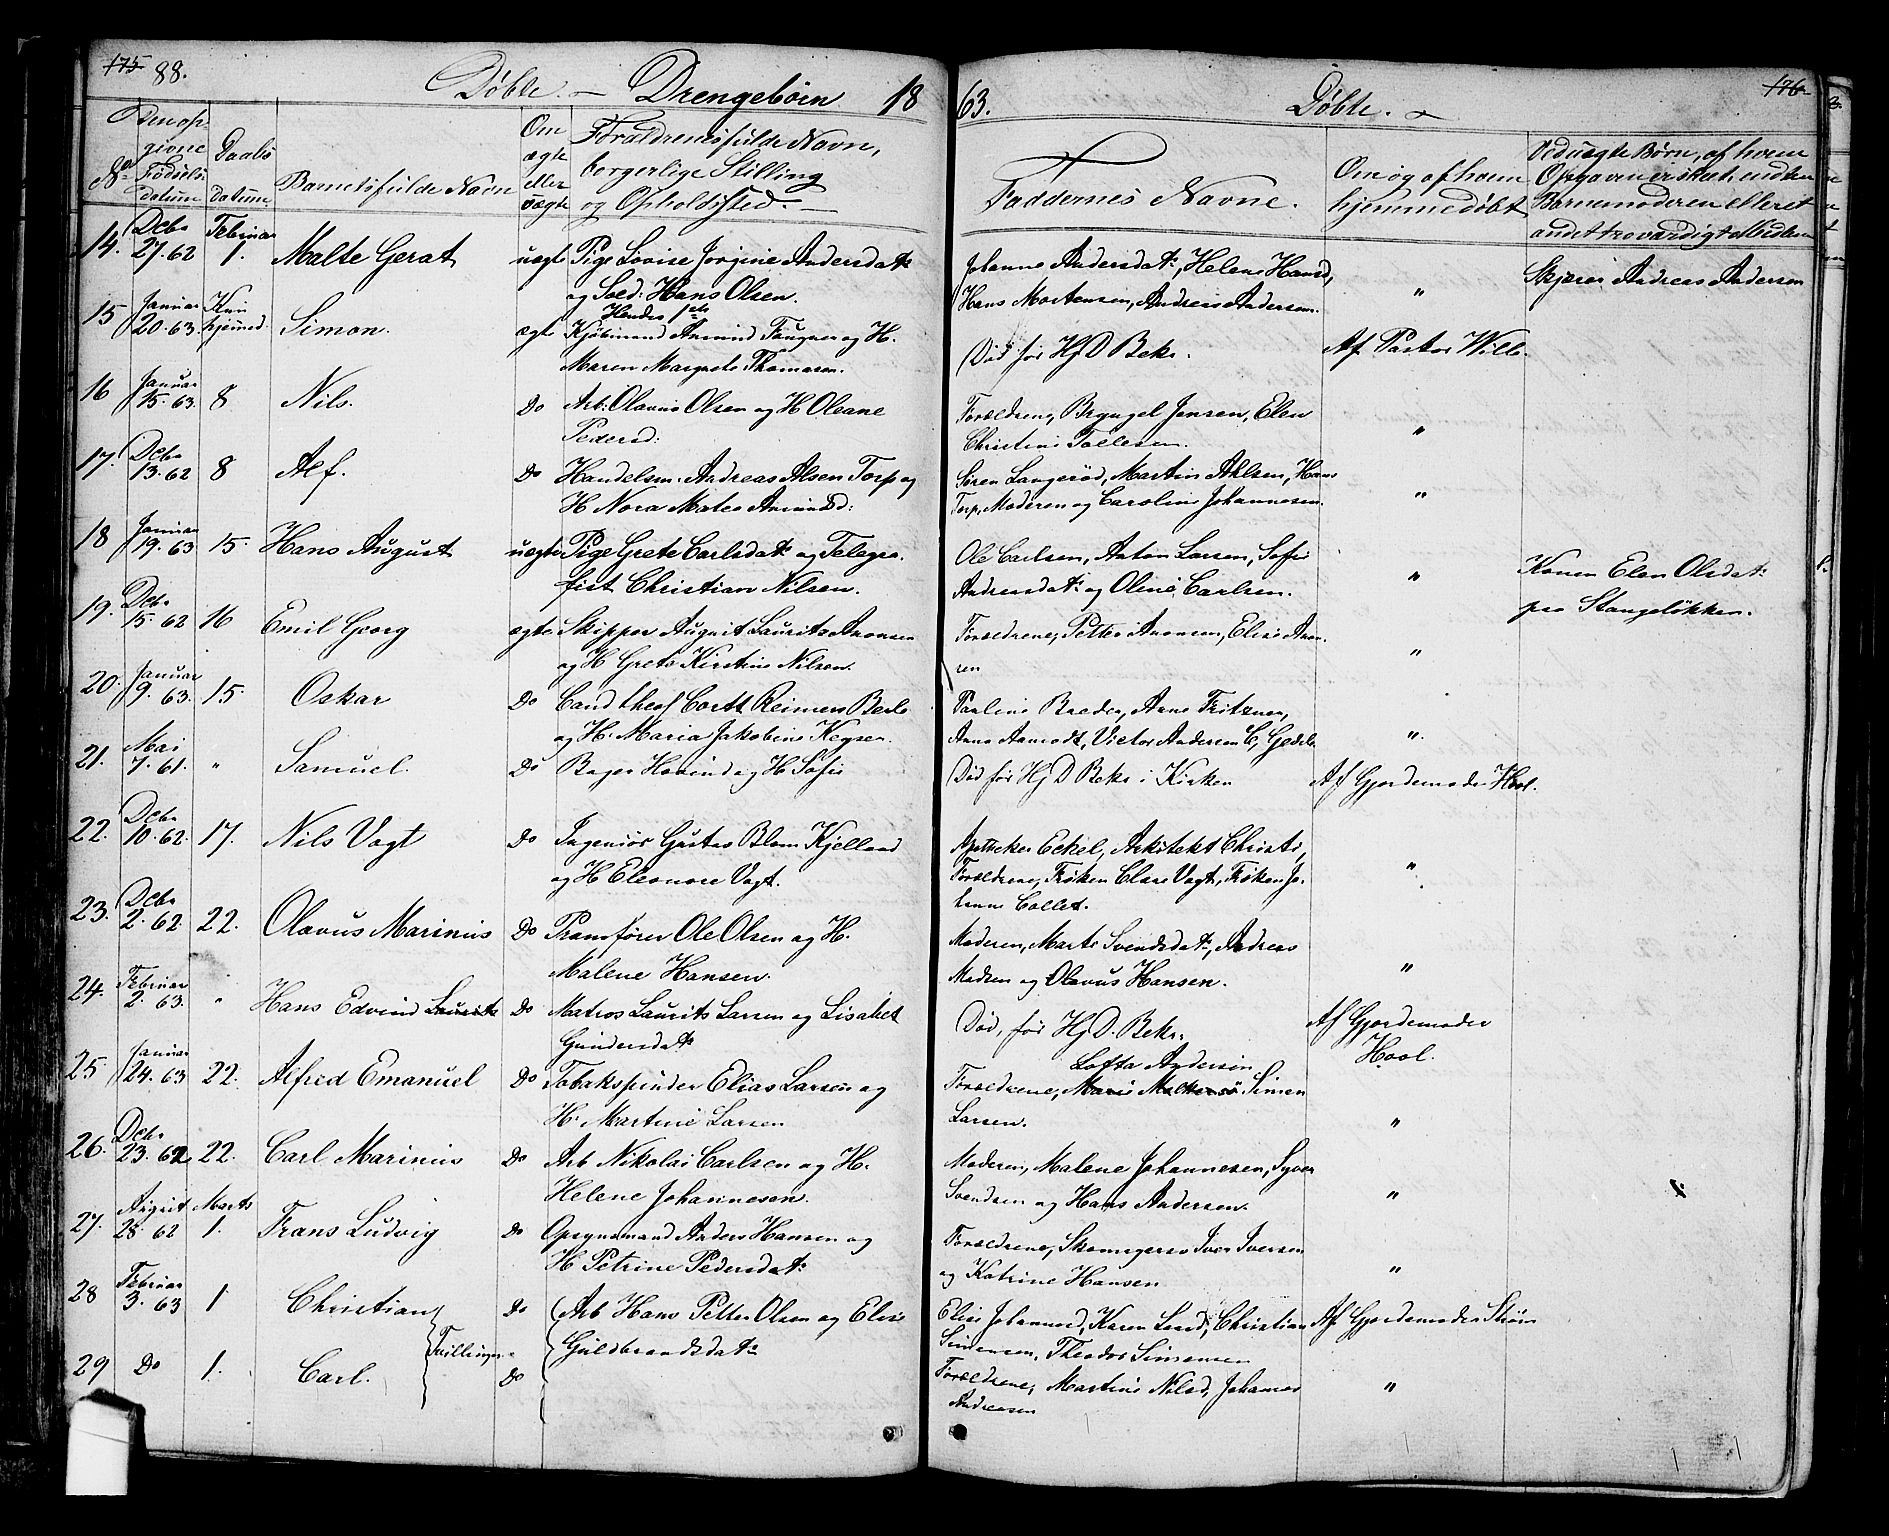 175 88.
Døbte. — Drengebörn 18
63. Døbte. — 176
No
Den opgivne Fødselsdatum
Daabsdatum
Barnets fulde Navn
Om ægte eller uægte
Forældrenes fulde Navn,
borgerlige Stilling
og Opholdssted. —
Faddernes Navne.
Om og af hvem
hjemmedøbt
Ved uægte Børn, af hvem
Opgaven er skeet, enten
Barnemoderen eller et
andet troværdigt Menneske
14. Debr 27. 62 Februar 1. Malte Gerat uægte Pige Lovise Jørgine Andersdatr
og Sold: Hans Olsen.
Hendes 1ste
Johanne Andersdatr, Helene Hansd,
Hans Mortensen, Andreas Andersen.
"
Skjærer Andreas Andersen
15 Januar 20. 63. Kun hjemmed. Simon. ægte Kjøbmand Amund Fougner og H.
Maren Margrete Thomasen.
Død før Hj D Bekr.
Af Pastor Wille.
16 Januar 15. 63. 8 Nils. Do Arb: Olavus Olsen og H Oleane
Pedersd:
Forældrene, Bryngel Jensen, Elen
Christine Tollesen.
"
17. Debr 13. 62 8 Alf. Do Handelsm: Andreas Alsen Torp og
H Nora Matea Amundsd:
Søren Langerød, Martin Ahlsen, Hans
Torp, Moderen og Caroline Johannesen.
"
18 Januar 19. 63 15. Hans August uægte Pige Grete Carlsdatr og Telegra-
fist Christian Nilsen.
Ole Carlsen, Anton Larsen, Sofie
Andersdatr og Oline Carlsen.
"
Konen Elen Olsdatr
paa Stangeløkken.
19. Debr 15. 62 16 Emil Georg ægte Skipper August Lauritz Aronsen
og H Grete Kirstine Nilsen.
Forældrene, Petter Aronsen, Elise Aron-
sen
"
20. Januar 9. 63. 15. Oskar Do Cand theol Cortt Reimers Berle
og H. Maria Jakobine Keyser.
Pauline Breder, Anne Fritzner,
Anne Aamodt, Victor Andersen
"
21. Mai 7. 61. " Samuel. Do Bager Hovind og H Sofie
Død før Hj D Bekr i Kirken
Af Gjordemoder Hool.
22. Debr 10. 62. 17. Nils Vogt Do Ingeniør Gustav Blom Kjelland
og H Eleonore Vogt.
Apotheker Eckel, Arkitekt Christie,
Forældrene, Frøken Clara Vogt, Frøken Jo-
hanne Collet.
"
23. Debr 2. 62. 22. Olavus Marinius Do Pramfører Ole Olsen og H.
Malene Hansen.
Moderen, Marte Svendsdatr, Andreas
Madsen og Olavus Hansen.
"
24. Februar 2. 63. " Hans Edvind Laurits Do Matros Laurits Larsen og Lisabet
Gundersdatr
Død, før Hj. D. Bekr.
Af Gjordemoder
Hool.
25 Januar 24. 63 22. Alfred Emanuel Do Tobakspinder Elias Larsen og
H. Martine Larsen
Lotta Andersen
Forældrene, Simen
Larsen.
"
26. Debr 23. 62 22. Carl Marinius Do Arb Nikolai Carlsen og H.
Helene Johannesen.
Moderen, Malene Johannesen, Syver
Svendsen og Hans Andersen.
"
27. August 28. 62 Marts 1. Frans Ludvig Do Opsynsmand Anders Hansen og
H Petrine Pedersdatr
Forældrene, Skomager Iver Iversen
og Katrine Hansen
"
28 Februar 3. 63 1 Christian Do Arb Hans Petter Olsen og Elise
Guldbrandsdatr
Tvillinger
Elise Johannesd, Karen Larsd, Christian
Simensen, Theodor Simensen
Af Gjordemoder Strøm
29 Do 1. Carl. Do
Forældrene, Martine Nilsd, Johannes
Andreasen
"